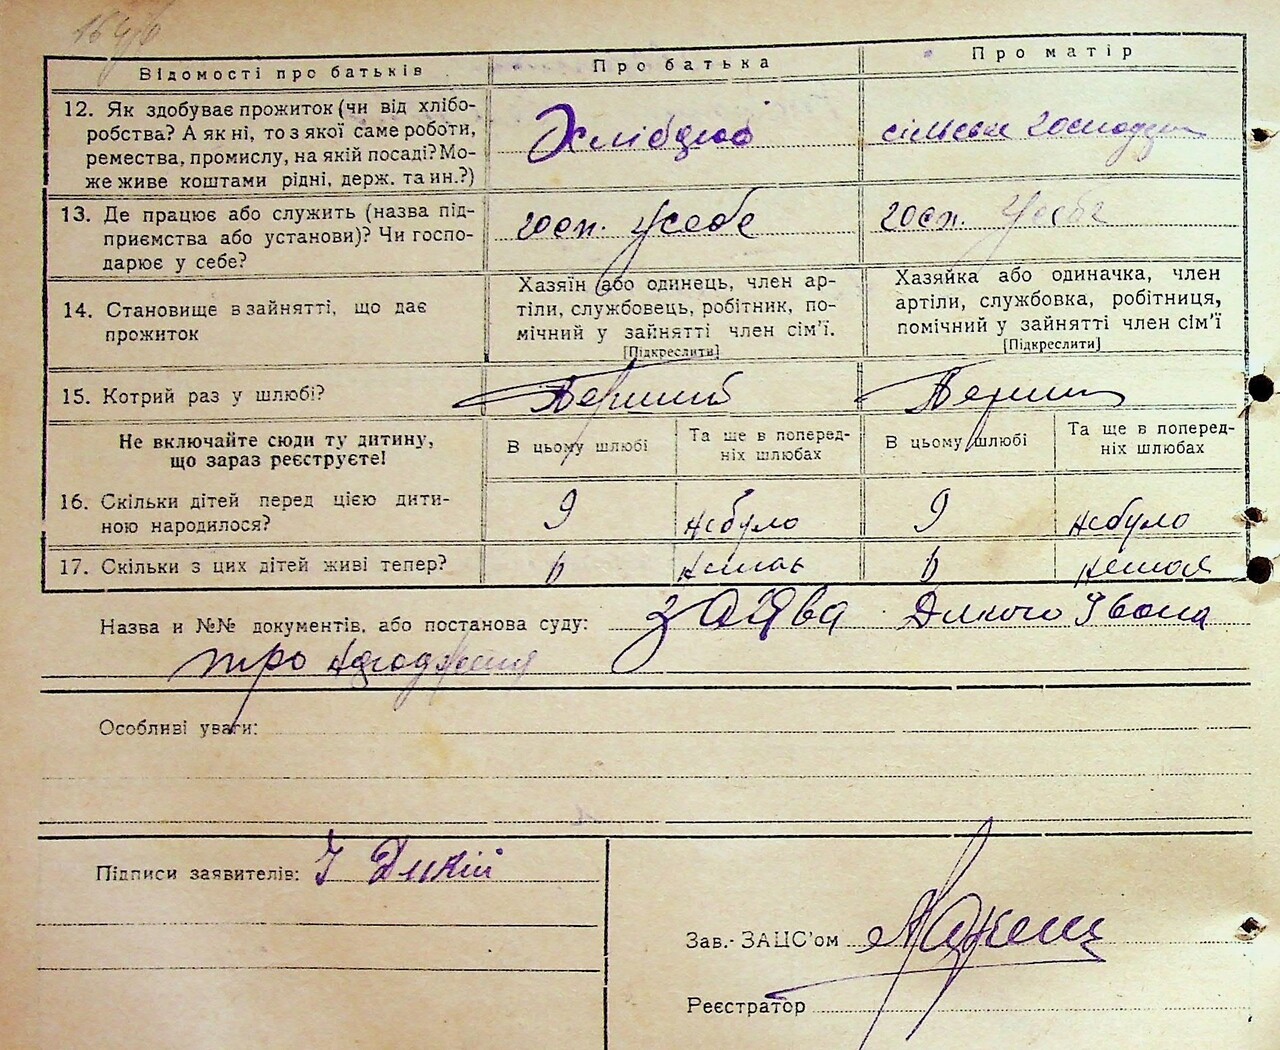 Відомості про батьків Про батька Про матір
12. Як здобуває прожиток (чи від хлібо-
робства? А як ні, то з якої саме роботи,
ремества, промислу, на якій посаді? Мо-
же живе коштами рідні, держ. та ин.?)
Хлібороб сільське господар
13. Де працює або служить (назва під-
приємства або установи)? Чи госпо-
дарює у себе?
госп. Усебе госп. Усебе
14. Становище в зайнятті, що дає
прожиток
Хазяїн або одинець, член ар-
тіли, службовець, робітник, по-
мічний у зайнятті член сім'ї.
[Підкреслити]
Хазяйка або одиначка, член
артіли, службовка, робітниця,
помічний у зайнятті член сім'ї
[Підкреслити]
15. Котрий раз у шлюбі? Перший Перший
Не включайте сюди ту дитину,
що зараз реєструєте!
В цьому шлюбі Та ще в поперед-
ніх шлюбах
В цьому шлюбі Та ще в поперед-
ніх шлюбах
16. Скільки дітей перед цією дити-
ною народилося?
9 небуло 9 небуло
17. Скільки з цих дітей живі тепер? 6 немає 6 немає
Назва и №№ документів, або постанова суду: заява Дикого Івана
про народження
Особливі уваги:
Підписи заявителів: І Дикій
Зав.- ЗАЦС'ом
Реєстратор